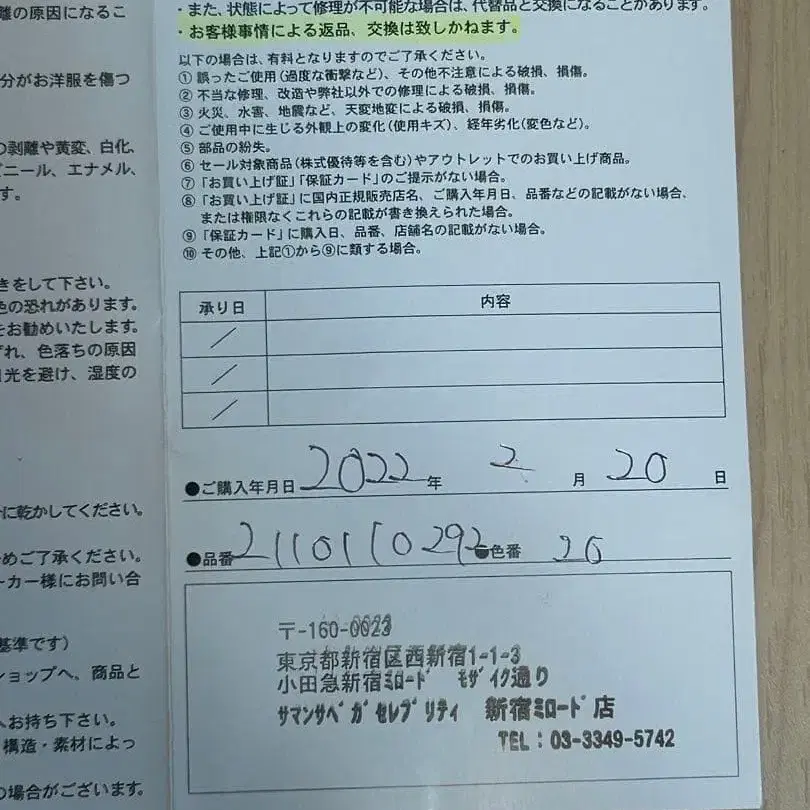 離の原因になるこ
分がお洋服を傷つ
の剥離や黄変、白化、
ビニール、エナメル、
す。
きをして下さい。
色の恐れがあります。
をお勧めいたします。
ずれ、色落ちの原因
日光を避け、湿度の
に乾かしてください。
めご了承ください。
ーカー様にお問い合
基準です)
ショップへ、商品と
へお持ち下さい。
構造・素材によっ
の場合がございます。
・また、状態によって修理が不可能な場合は、代替品と交換になることがあります。
・お客様事情による返品、交換は致しかねます。
以下の場合は、有料となりますのでご了承ください。
① 誤ったご使用(過度な衝撃など)、その他不注意による破損、損傷。
② 不当な修理、改造や弊社以外での修理による破損、損傷。
③ 火災、水害、地震など、天変地変による破損、損傷。
④ ご使用中に生じる外観上の変化(使用キズ)、経年劣化(変色など)。
⑤ 部品の紛失。
⑥ セール対象商品(株式優待等を含む)やアウトレットでのお買い上げ商品。
⑦ 「お買い上げ証」「保証カード」のご提示がない場合。
⑧ 「お買い上げ証」に国内正規販売店名、ご購入年月日、品番などの記載がない場合、
または権限なくこれらの記載が書き換えられた場合。
⑨ 「保証カード」に購入日、品番、店舗名の記載がない場合。
⑩ その他、上記①から⑨に類する場合。
承り日 内容
／
／
／
●ご購入年月日 2022 年 2 月 20 日
●品番 2110110292 ●色番 20
〒-160-0023
東京都新宿区西新宿1-1-3
小田急新宿ミロード モザイク通り
サマンサベガ セレブリティ 新宿ミロード店
TEL：03-3349-5742